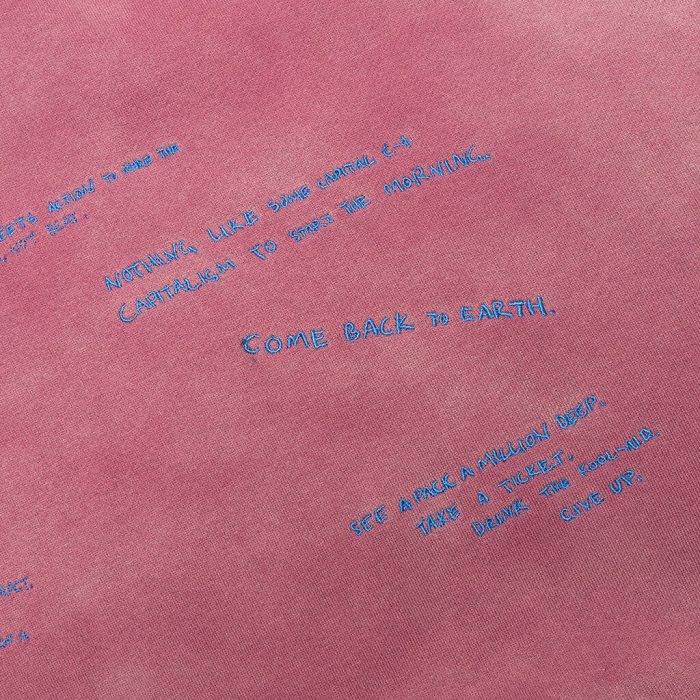 ACTION TO MAKE THE
NOT BEAT.
NOTHING LIKE SOME CAPITAL C-4
CAPITALISM TO START THE MORNING...
COME BACK TO EARTH.
SEE A PACK A MILLION DEEP.
TAKE A TICKET.
DRINK THE KOOL-AID.
GIVE UP.
OF A